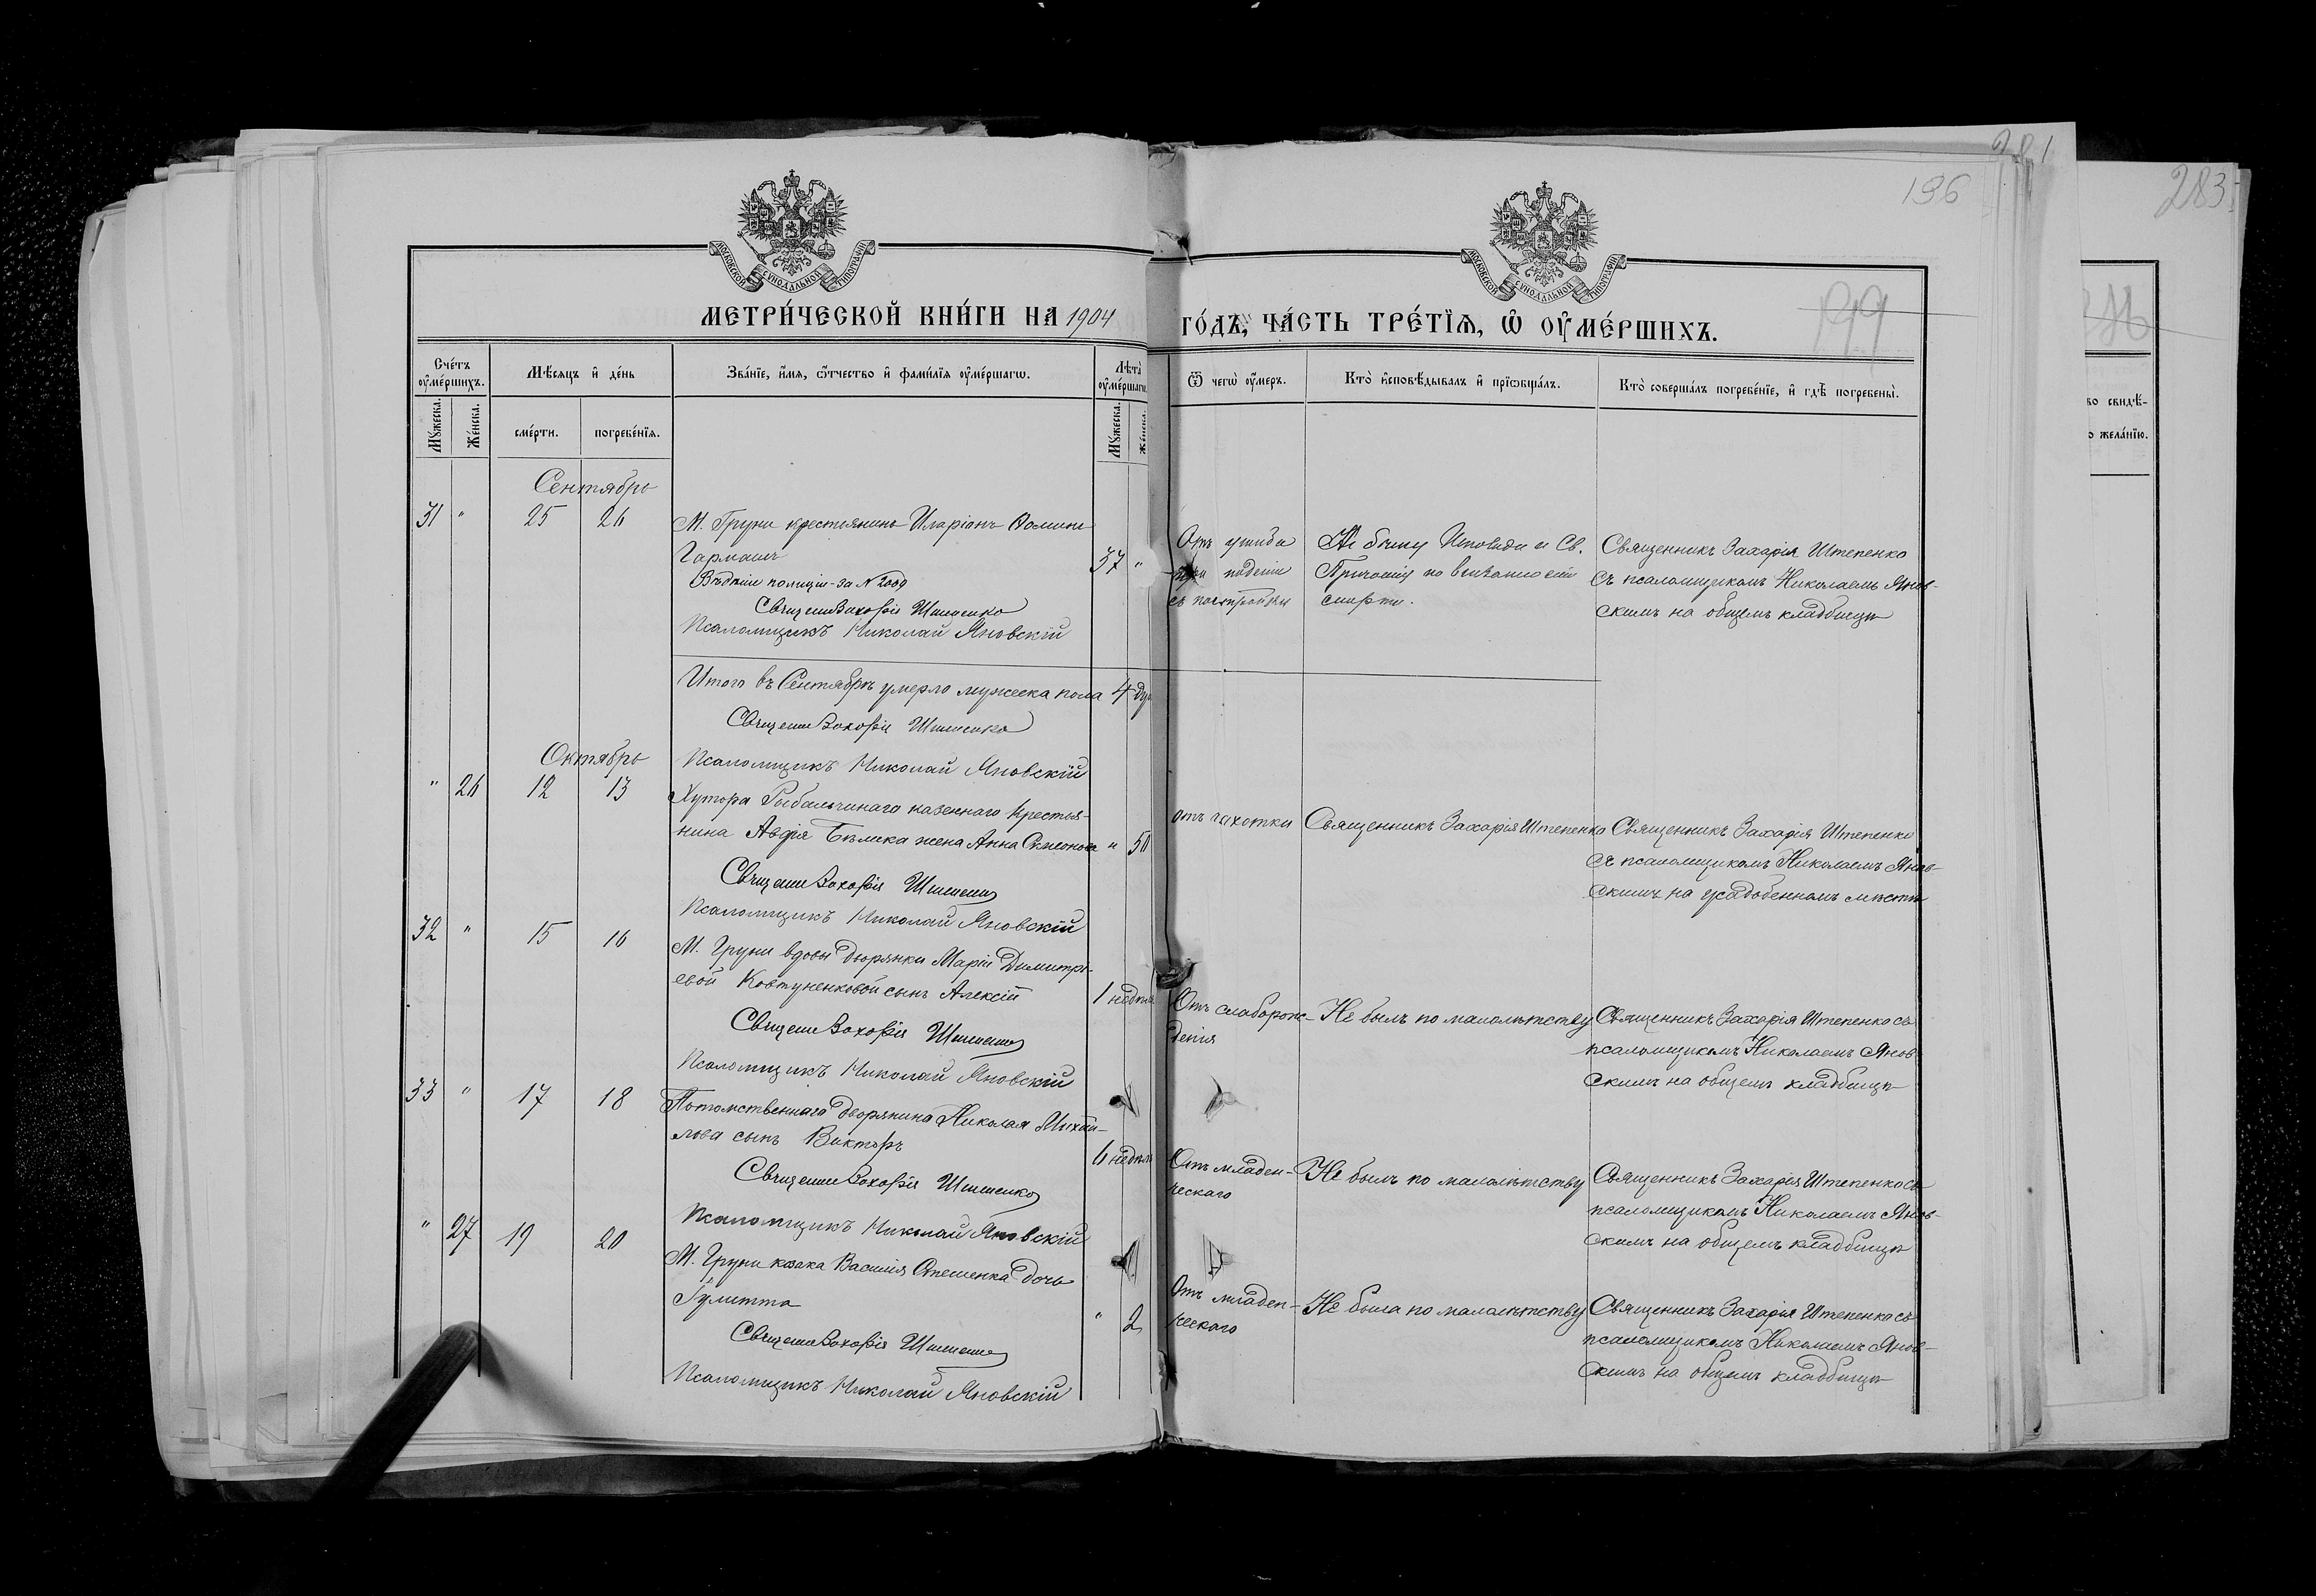 136
281
283
199
МОСКОВСКОЙ СѴНОДАЛЬНОЙ ТИПОГРАФІИ
МОСКОВСКОЙ СѴНОДАЛЬНОЙ ТИПОГРАФІИ
МЕТРИ́ЧЕСКОЙ КНИ́ГИ НА 1904 ГО́ДЪ, ЧА́СТЬ ТРЕ́ТЇѦ, Ѡ҆ ОУ҆МЕ́РШИХЪ.
Сче́тъ оу҆ме́ршихъ.
Мѣ́сѧцъ и҆ де́нь
Зва́нїе, и҆́мѧ, ѻ҆́тчество и҆ фами́лїѧ оу҆ме́ршагѡ.
Лѣ́та оу҆ме́ршагѡ.
Ѿ чегѡ̀ оу҆́меръ.
Кто̀ и҆сповѣ́дывалъ и҆ прїѡбща́лъ.
Кто̀ соверша́лъ погребе́нїе, и҆ гдѣ̀ погребены̀.
Мꙋ́жеска. Же́нска.
сме́рти. погребе́нїѧ.
Мꙋ́жеска. Же́нска.
во свидѣ́-
о жела́нїю.
Сентябрь
31 " 25 26
М. Груни крестьянинъ Иларіонъ Ѳоминъ
Гармашъ
37 "
Вѣдѣніи полиціи за № 2009
Священ Захарія Штепенко
Псаломщикъ Николай Яновскій
Отъ ушиба
при паденіи
съ постройки
Не былъ Исповѣди и Св.
Причастія по внезапности
смерти.
Священникъ Захарія Штепенко
съ псаломщикомъ Николаемъ Янов-
скимъ на общемъ кладбищѣ
Итого въ Сентябрѣ умерло мужеска пола 4 ду
Священ Захарія Штепенко
Псаломщикъ Николай Яновскій
Октябрь
" 26 12 13
Хутора Рыбальчинаго казеннаго крестья-
нина Авдія Бѣлика жена Анна Симеонова " 50
Священ Захарія Штепенко
Псаломщикъ Николай Яновскій
отъ чахотки
Священникъ Захарія Штепенко
Священникъ Захарія Штепенко
съ псаломщикомъ Николаемъ Янов-
скимъ на усадобенномъ мѣстѣ
32 " 15 16
М. Груни вдовы дворянки Маріи Димитрі-
евой Ковтуненковой сынъ Алексій
1 недѣля
Священ Захарія Штепенко
Псаломщикъ Николай Яновскій
Отъ слаборож-
денія
Не былъ по малолѣтству
Священникъ Захарія Штепенко съ
псаломщикомъ Николаемъ Янов
скимъ на общемъ кладбищѣ
33 " 17 18
Потомственнаго дворянина Николая Михай-
лова сынъ Викторъ
6 недѣль
Священ Захарія Штепенко
Псаломщикъ Николай Яновскій
Отъ младен-
ческаго
Не былъ по малолѣтству
Священникъ Захарія Штепенко съ
псаломщикомъ Николаемъ Янов-
скимъ на общемъ кладбищѣ
" 27 19 20
М. Груни казака Василія дочь
Іулитта
" 2
Священ Захарія Штепенко
Псаломщикъ Николай Яновскій
Отъ младен-
ческаго
Не была по малолѣтству
Священникъ Захарія Штепенко съ
псаломщикомъ Николаемъ Янов-
скимъ на общемъ кладбищѣ